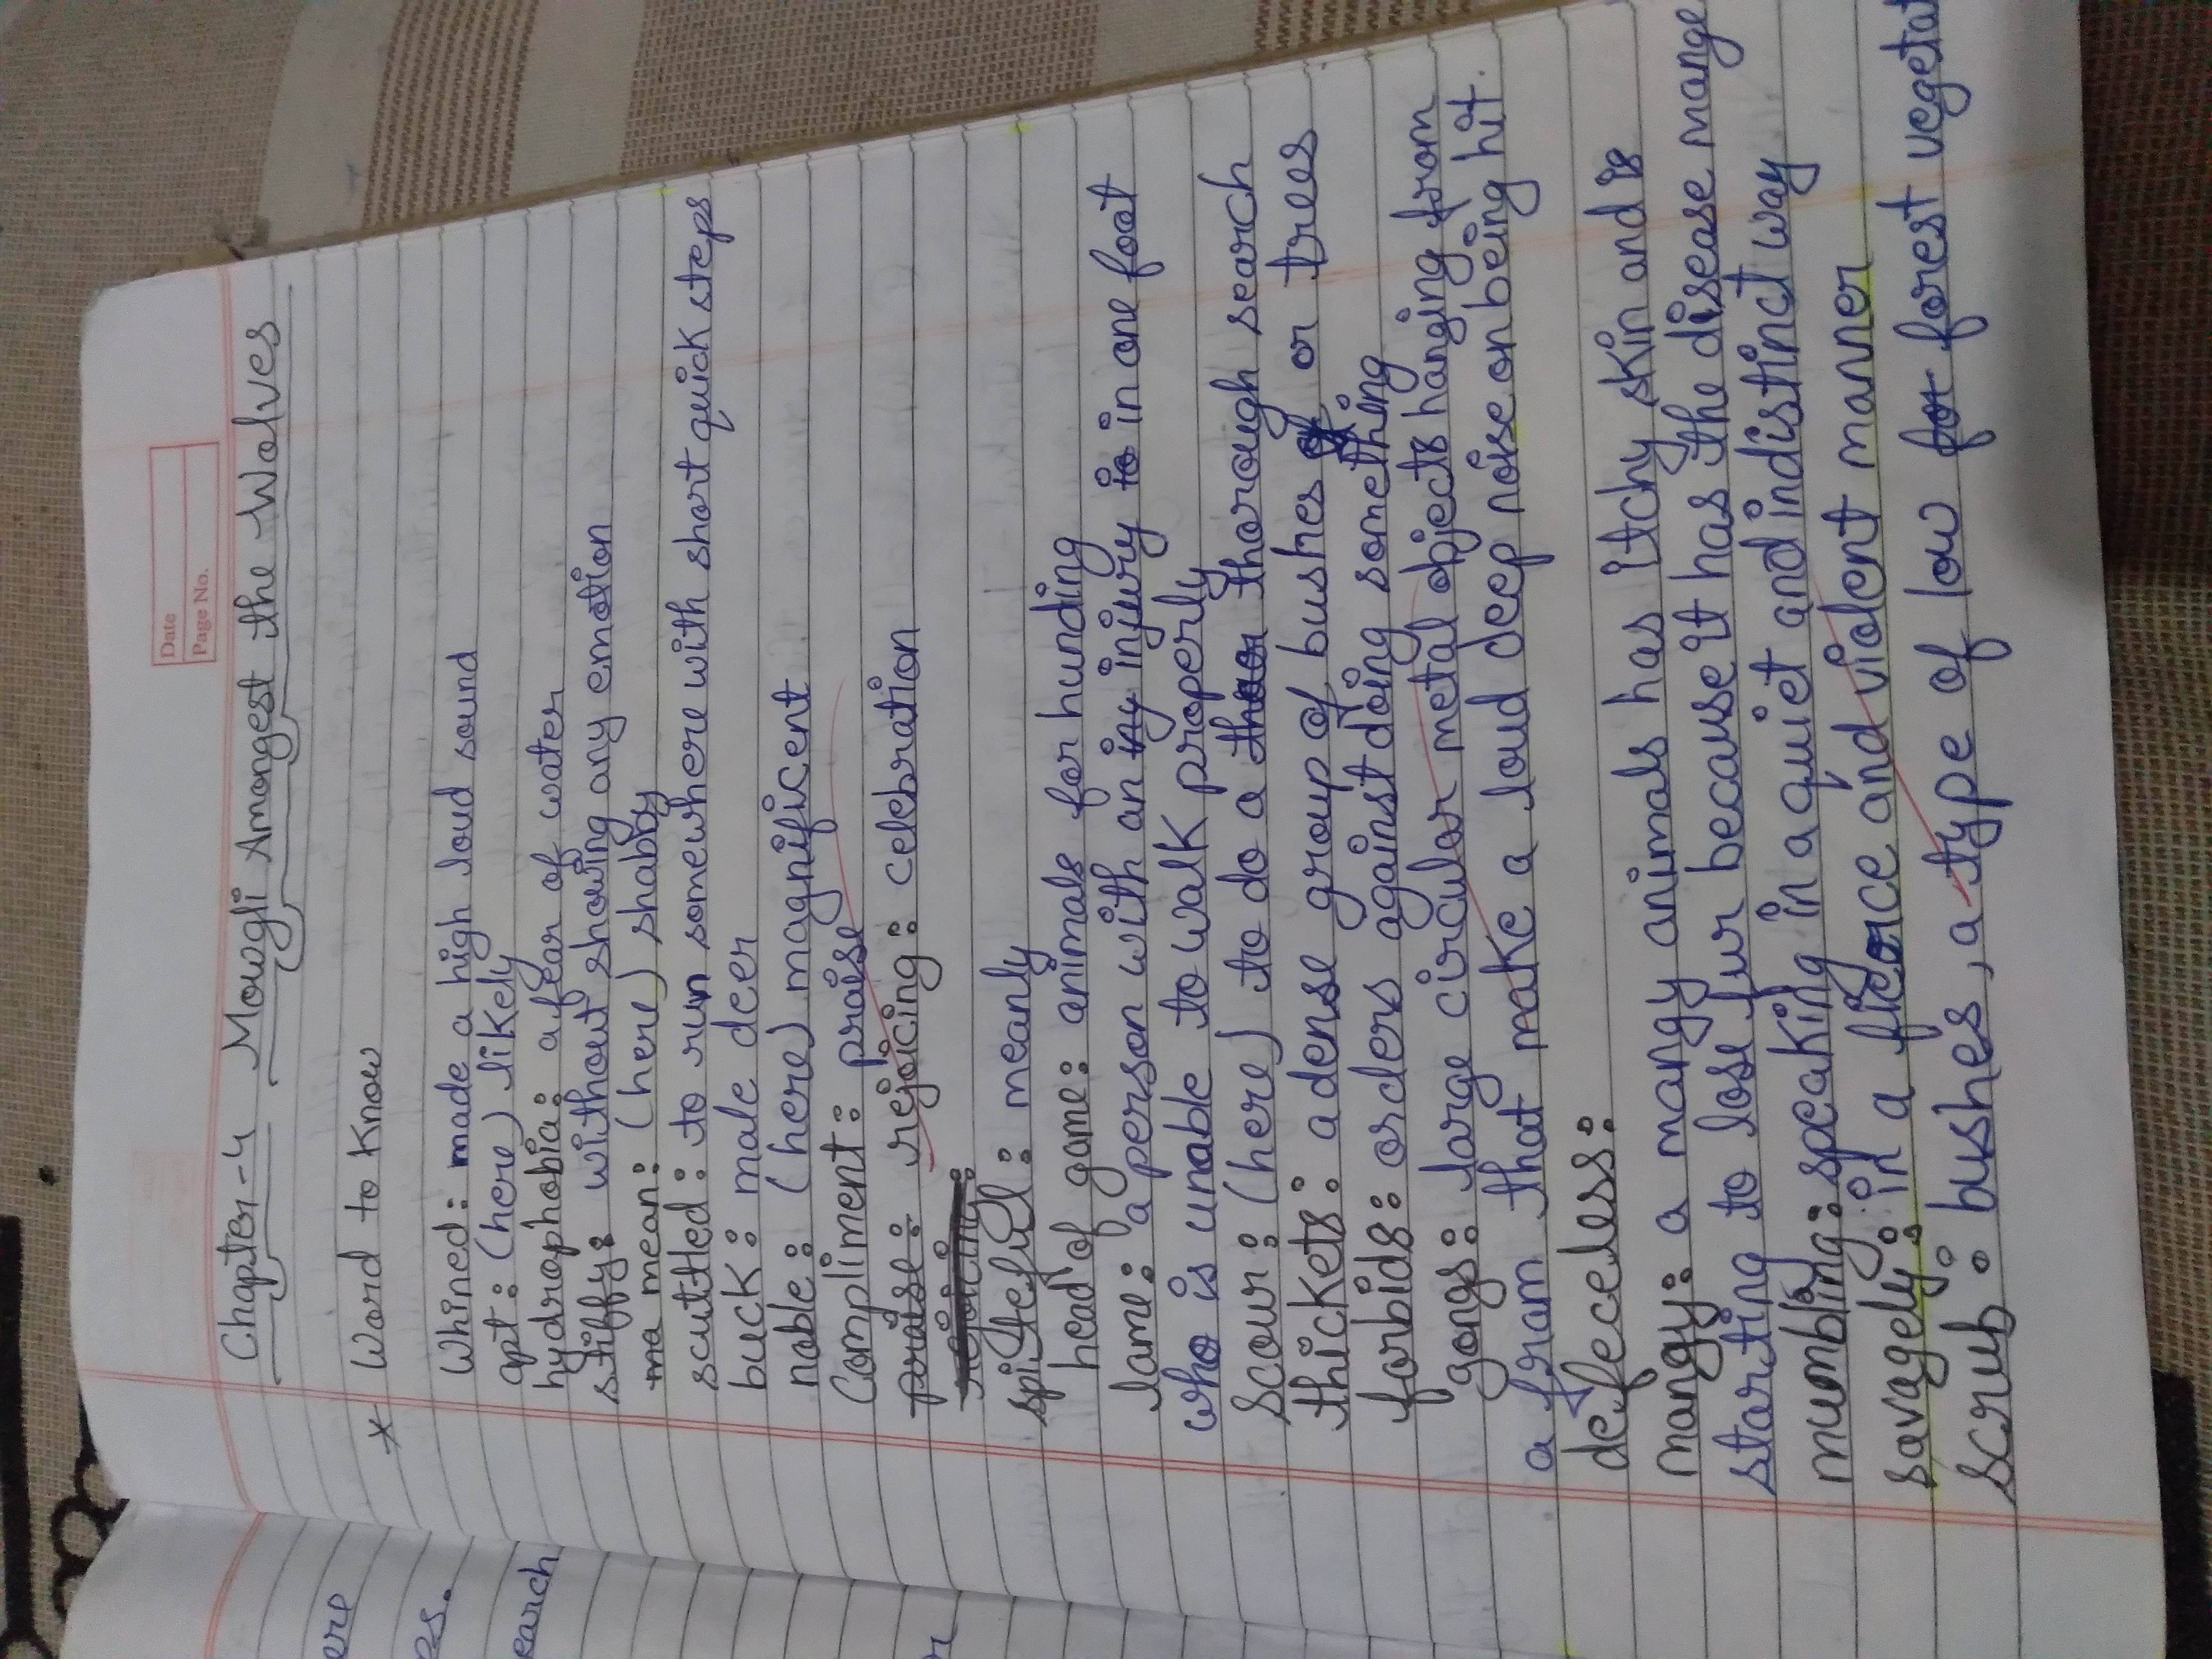 Date
Page No.
Chapter-4 Mowgli Amongest the Wolves
* Word to Know
Whined: made a high loud sound
apt: (here) likely
hydrophobia: a fear of water
stiffy: without showing any emotion
ma mean: (here) shabby
scuttled: to run somewhere with short quick steps
buck: male deer
noble: (here) magnificent
Compliment: praise
praise: rejoicing: celebration
rejoicing:
spiteful: meanly
head of game: animals for hunding
lame: a person with an inj injury to in one foot
who is unable to walk properly
Scour: (here) to do a thoor thorough search
thickets: a dense group of bushes of or trees
forbids: orders against doing something
gongs: large circular metal objects hanging from
a fram that make a loud deep noise on being hit.
defeceless:
mangy: a mangy animals has itchy skin and is
starting to lose fur because it has the disease mange
mumbling: speaking in a quiet and indistinct way
savagely: in a fierce and violent manner
scrub: bushes, a type of low for forest vegetat
ere
es.
earch
r